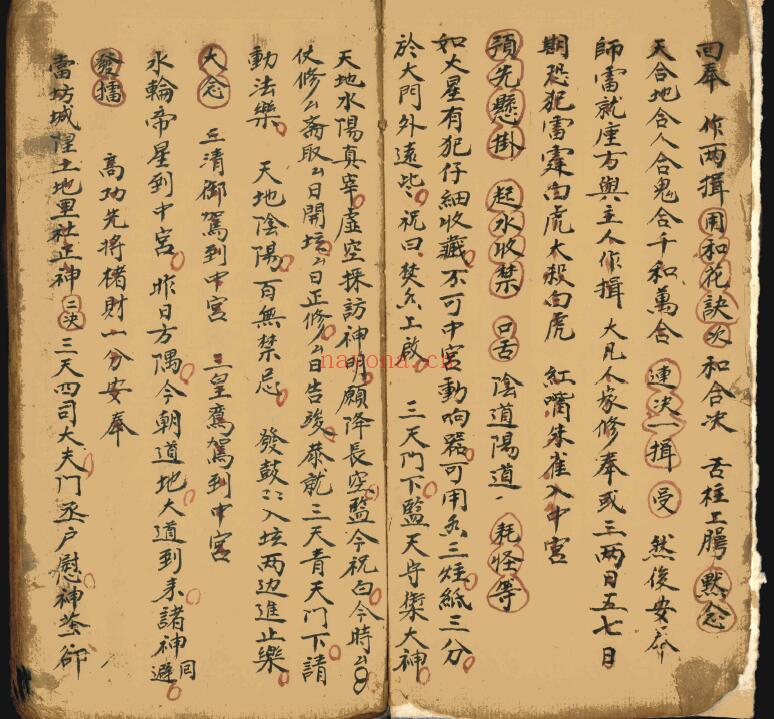 回奉 作兩揖 用和花訣次和合決 舌柱上腭 默念
天合地合人合鬼合千和萬合 連決一揖 受 然後安奉
師當就座方與主人作揖 大凡人家修奉或三兩日五七日
期恐犯雷霆白虎大殺白虎 紅嘴朱雀入中宮
預先懸掛 起水收禁 口舌 陰道陽道 耗怪等
如火星有犯仔細收藏不可中宮動响器可用三炷紙三分
於大門外遠些 祝曰 焚上啟 三天門下監天守禁大神
天地水陽真宰虛空採訪神明願降長空監今祝白今時
仗修厶齋取厶日開坛厶日正修厶日告竣恭就三天青天門下請
動法樂 天地陰陽百無禁忌 發鼓入坛兩边進止樂
大念 三清御駕到中宮 三皇鸞駕到中宮
永輪帝星到中宮 昨日方隅今朝道地大道到來諸神同避
發擂 高功先將楮財一分安奉
當坊城隍土地里社正神 三決 三天四司大夫門丞户慰神荼
narona.cn